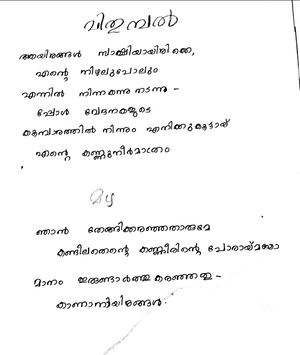 വിതുമ്പൽ
ആയിരങ്ങൾ സാക്ഷിയായിരിക്കെ,
എന്റെ നിഴലുപോലും
എന്നിൽ നിന്നകന്നു നടന്നു -
ഒപ്പോൾ വേദനകളുടെ
കൂമ്പാരത്തിൽ നിന്നും എനിക്കുകൂട്ടായ്
എന്റെ കണ്ണുനീർമാത്രം
മഴ
ഞാൻ തേങ്ങിക്കരഞ്ഞതാരുമേ
കണ്ടില്ലതെന്റെ കണ്ണീരിന്റെ പോരായ്മയോ
മാനം ഇരുണ്ടാർത്തു കരഞ്ഞതു -
കാണാനായിരങ്ങൾ.